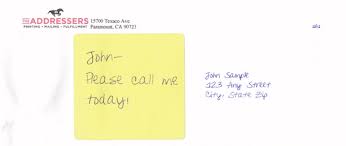 THE ADDRESSERS
PRINTING • MAILING • FULFILLMENT
15700 Texaco Ave.
Paramount, CA 90723
John–
Please call me
today!
John Sample
123 Any Street
City, State Zip